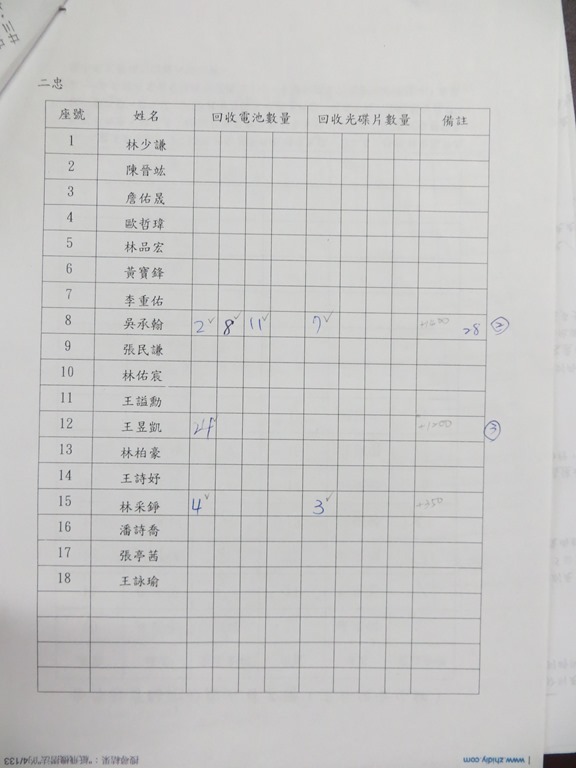 二忠
座號 姓名 回收電池數量 回收光碟片數量 備註
1 林少謙
2 陳晉竑
3 詹佑晟
4 歐哲瑋
5 林品宏
6 黃寶鋒
7 李重佑
8 吳承翰 2✓ 8✓ 11✓ 7✓ 28 ②
9 張民謙
10 林佑宸
11 王謚勳
12 王昱凱 24 +1200 ③
13 林柏豪
14 王詩妤
15 林采錚 4✓ 3✓ +350
16 潘詩喬
17 張亭茜
18 王詠瑜
搜尋結果："紙飛機摺法"的/4/133
| www.zhidiy.com